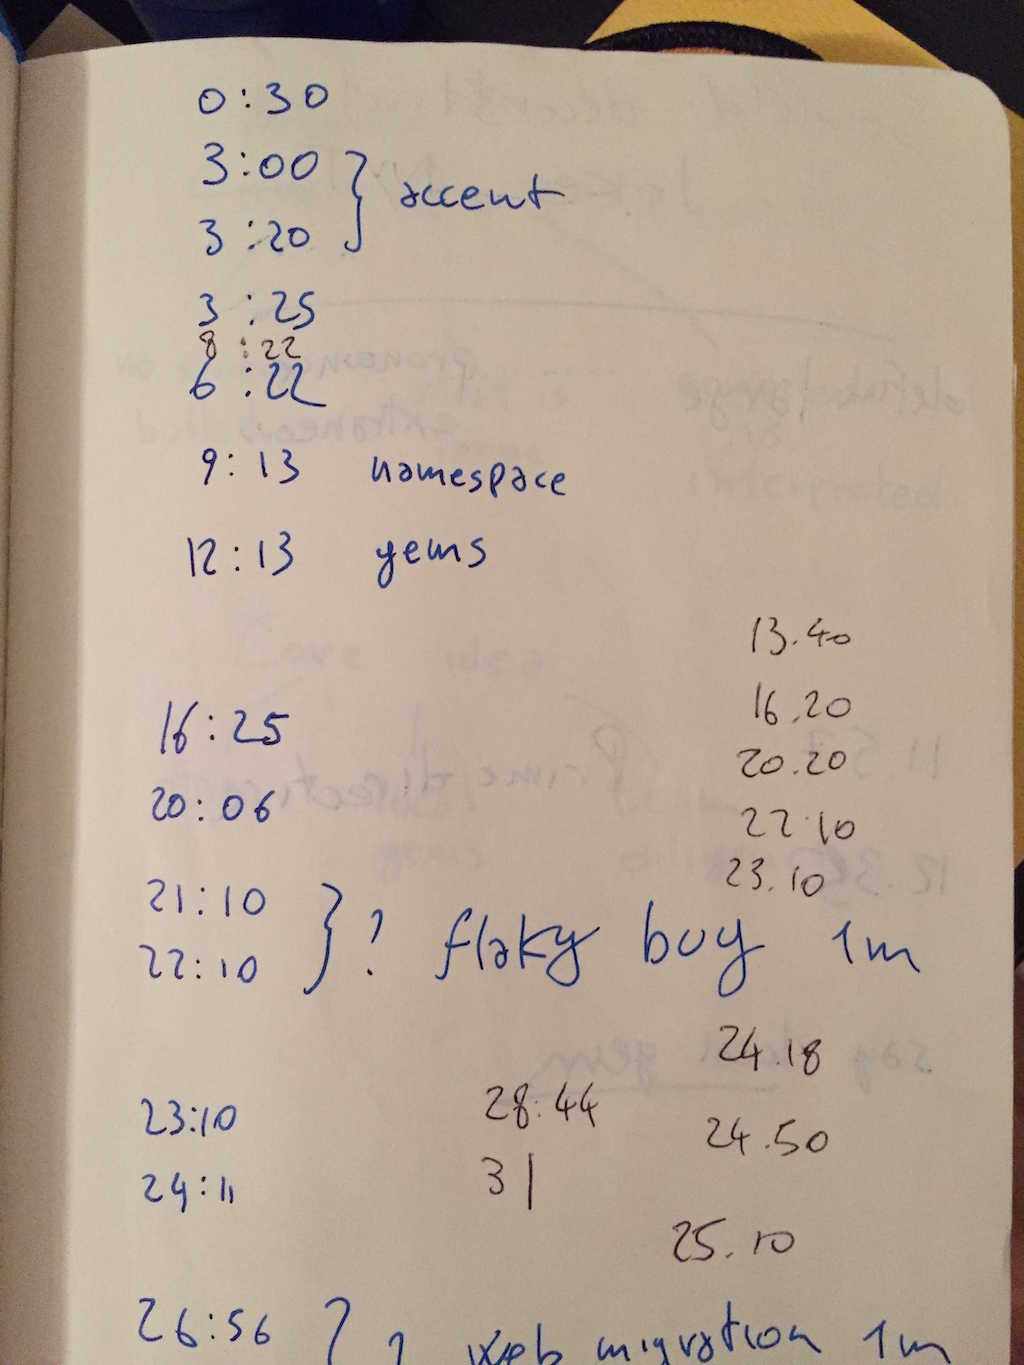 0:30
3:00
3:20 } accent
3:25
8:22
6:22
9:13 namespace
12:13 gems
13.40
16.20
16:25
20.20
20:06
22.10
23.10
21:10
22:10 } ? flaky buy 1m
24.18
23:10 28:44
24.50
24:11 31
25.10
26:56 } ? web migration 1m